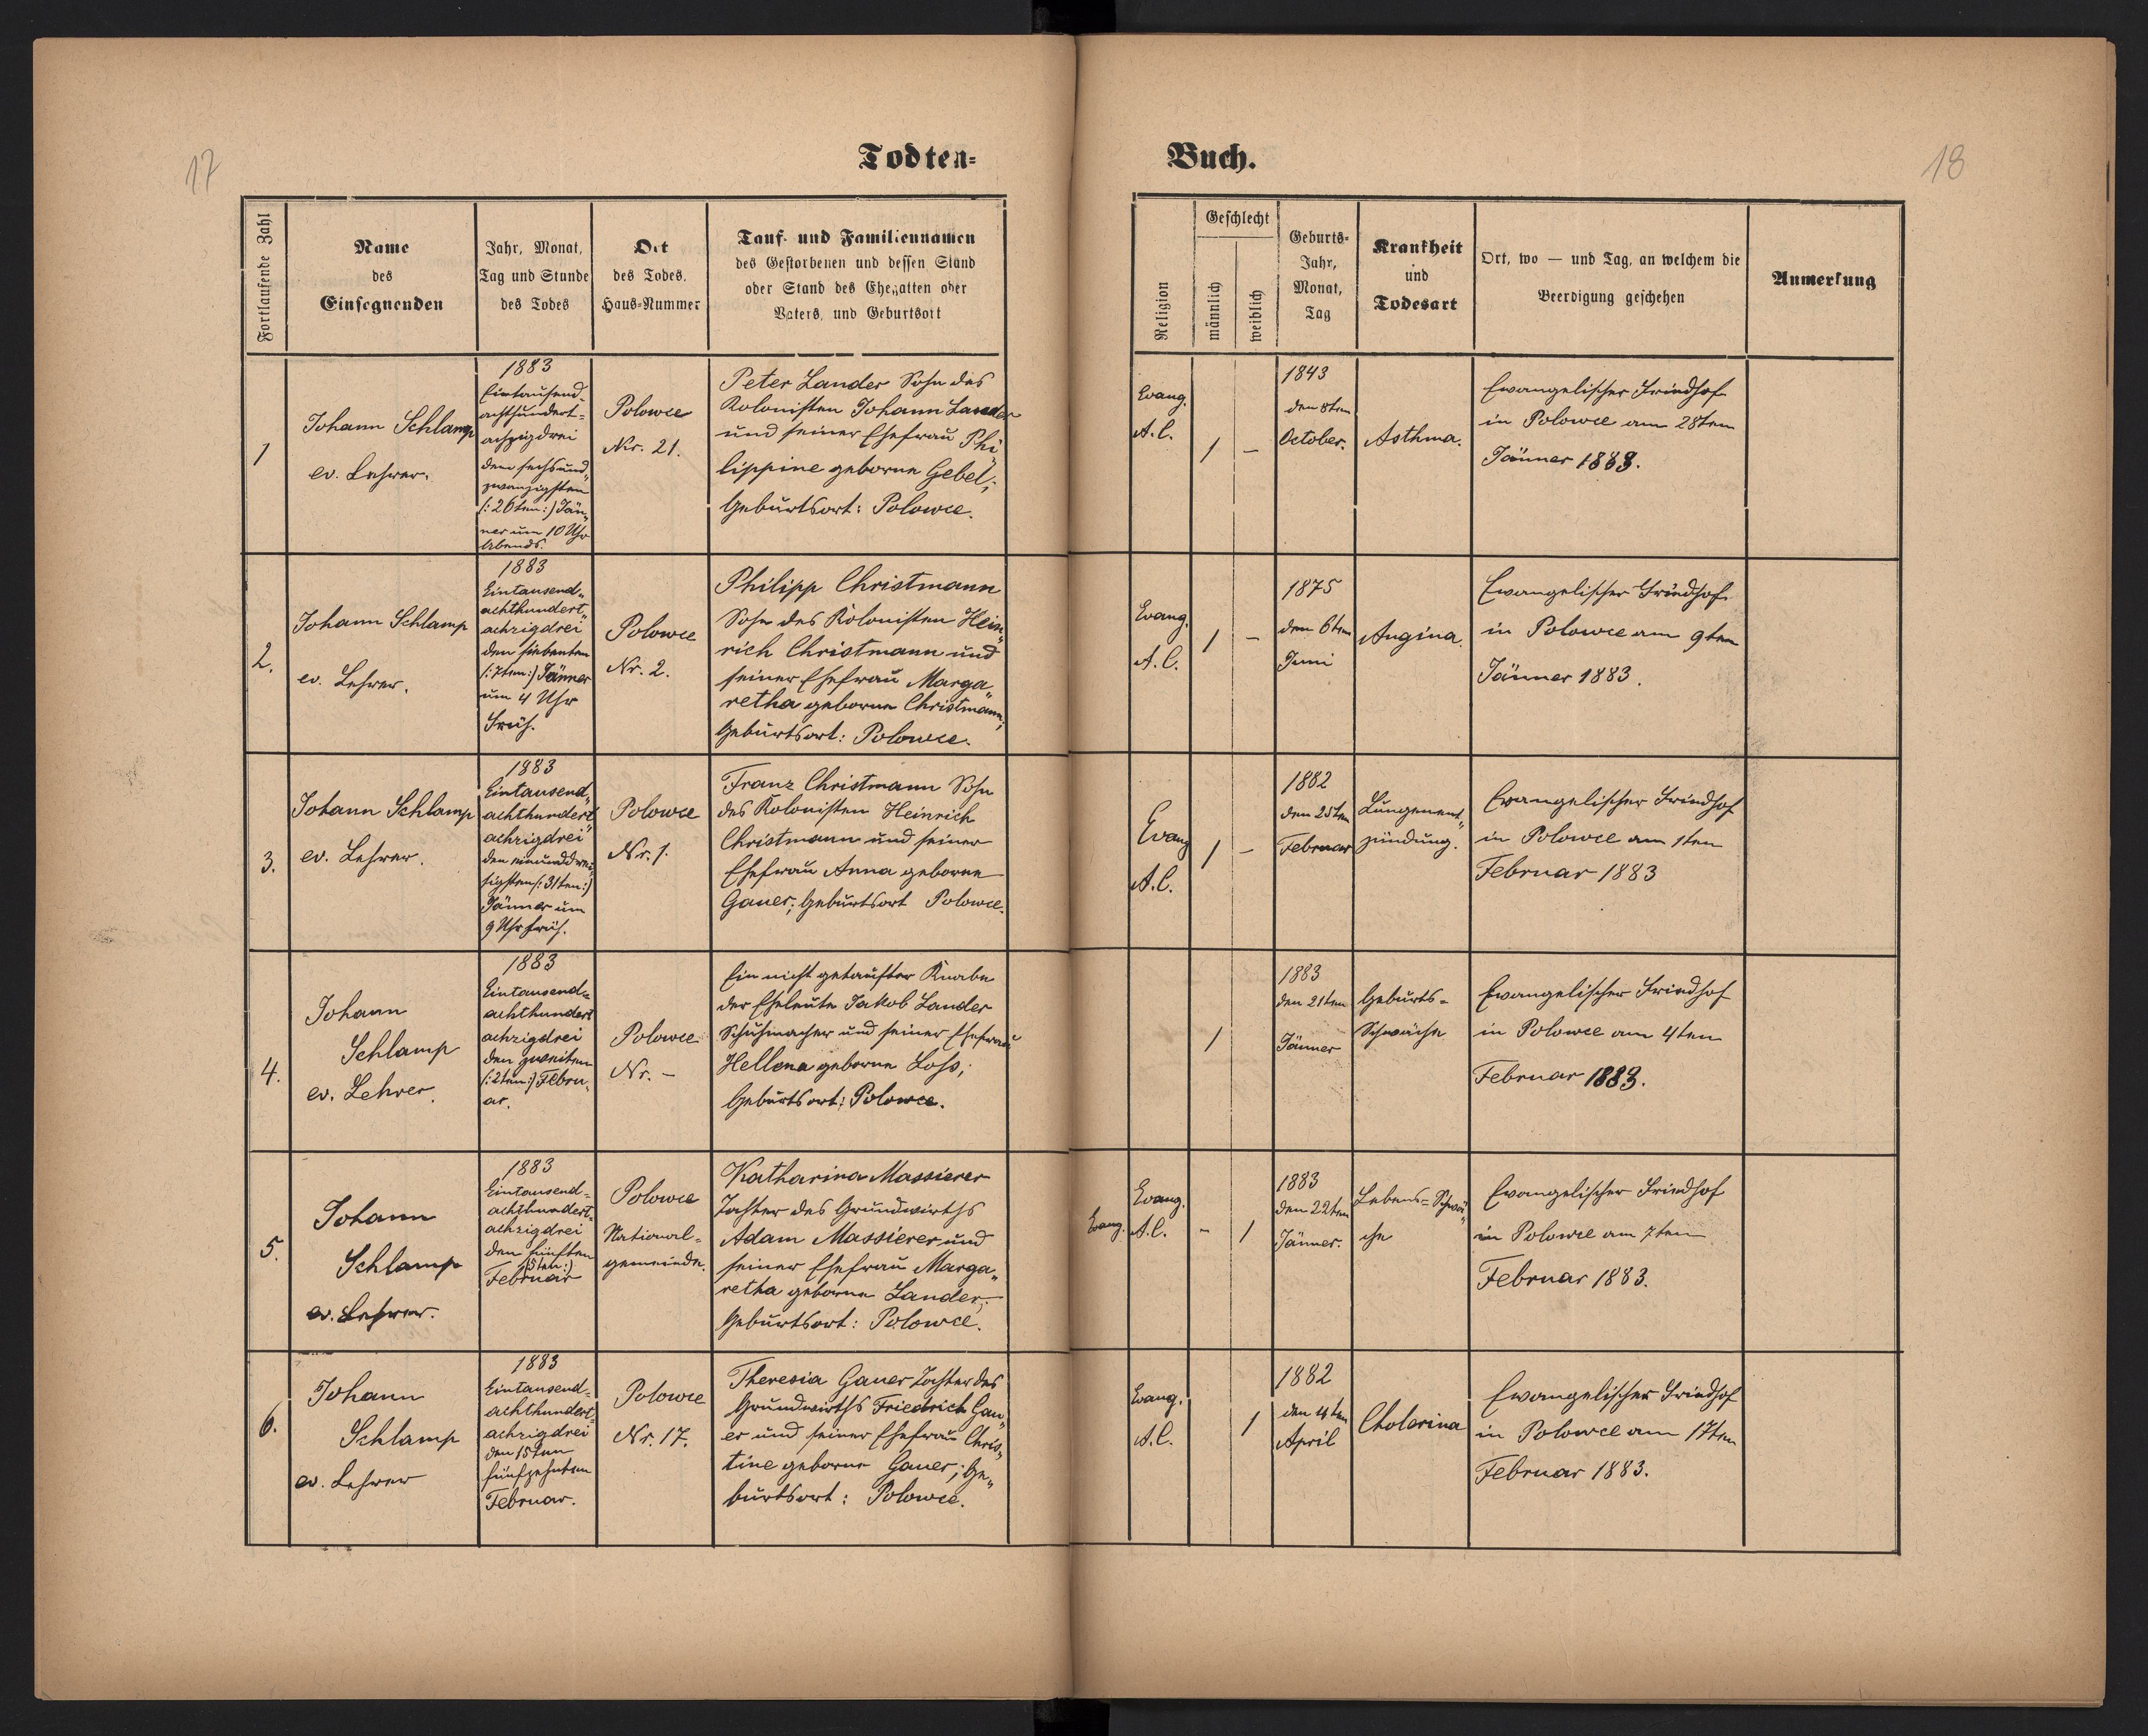 17
Todten=
Fortlaufende Zahl
Name
des
Einsegnenden
Jahr, Monat,
Tag und Stunde
des Todes
Ort
des Todes,
Haus=Nummer
Tauf- und Familiennamen
des Gestorbenen und dessen Stand
oder Stand des Ehegatten oder
Vaters, und Geburtsort
1
Johann Schlamp
ev. Lehrer.
1883
Eintausend-
achthundert=
achzigdrei
den sechsund„
zwanzigsten
(: 26ten :) Jän„
ner um 10 Uhr
Abends.
Polowce
Nr. 21.
Peter Lander Sohn des
Kolonisten Johann Lander
und seiner Ehefrau Phi„
lippine geborne Gebel;
Geburtsort: Polowce.
2.
Johann Schlamp
ev. Lehrer.
1883
Eintausend„
achthundert„
achzigdrei
den siebenten
(: 7ten :) Jänner
um 4 Uhr
Früh.
Polowce
Nr. 2.
Philipp Christmann
Sohn des Kolonisten Hein„
rich Christmann und
seiner Ehefrau Marga„
retha geborne Christmann;
Geburtsort: Polowce.
3.
Johann Schlamp
ev. Lehrer.
1883
Eintausend„
achthundert„
achzigdrei
den einunddrei„
sigsten (: 31ten :)
Jänner um
9 Uhr früh.
Polowce
Nr. 1.
Franz Christmann Sohn
des Kolonisten Heinrich
Christmann und seiner
Ehefrau Anna geborne
Gauer; Geburtsort Polowce.
4.
Johann
Schlamp
ev. Lehrer.
1883
Eintausend=
achthundert
achzigdrei
den zweiten
(: 2ten :) Febru„
ar.
Polowce
Nr. –
Ein nicht getaufter Knabe
der Eheleute Jakob Lander
Schuhmacher und seiner Ehefrau
Hellena geborne Loss;
Geburtsort: Polowce.
5.
Johann
Schlamp
ev. Lehrer.
1883
Eintausend=
achthundert=
achzigdrei
den fünften
(5ten :)
Februar
Polowce
National=
gemeinde.
Katharina Massierer
Tochter des Grundwirths
Adam Massierer und
seiner Ehefrau Marga„
retha geborne Lander;
Geburtsort: Polowce.
6.
Johann
Schlamp
ev. Lehrer
1883
Eintausend=
achthundert=
achzigdrei
den 15ten
fünfzehnten
Februar.
Polowce
Nr. 17.
Theresia Gauer Tochter des
Grundwirths Friedrich Gau„
er und seiner Ehefrau Chris„
tine geborne Gauer; Ge„
burtsort: Polowce.
18
Buch.
Religion
Geschlecht
männlich
weiblich
Geburts=
Jahr,
Monat,
Tag
Krankheit
und
Todesart
Ort, wo — und Tag, an welchem die
Beerdigung geschehen
Anmerkung
Evang.
A.C.
1
–
1843
den 8ten
October.
Asthma.
Ewangelischer Friedhof
in Polowce am 28ten
Jänner 1883.
Evang.
A.C.
1
–
1875
den 6ten
Juni
Angina.
Ewangelischer Friedhof
in Polowce am 9ten
Jänner 1883.
Evang
A.C.
1
–
1882
den 25ten
Februar
Lungenent„
zündung.
Evangelischer Friedhof
in Polowce am 1ten
Februar 1883
1
1883
den 21ten
Jänner
Geburts=
Schwäche
Ewangelischer Friedhof
in Polowce am 4ten
Februar 1883.
Evang.
Evang.
A.C.
–
1
1883
den 22ten
Jänner.
Lebens=Schwä„
che
Evangelischer Friedhof
in Polowce am 7ten
Februar 1883.
Evang.
A.C.
1
1882
den 4ten
April
Cholerina
Ewangelischer Friedhof
in Polowce am 17ten
Februar 1883.